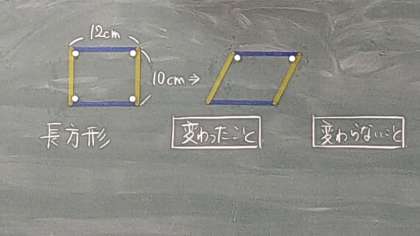 12cm
10cm⇒
長方形
変わったこと
変わらないこと